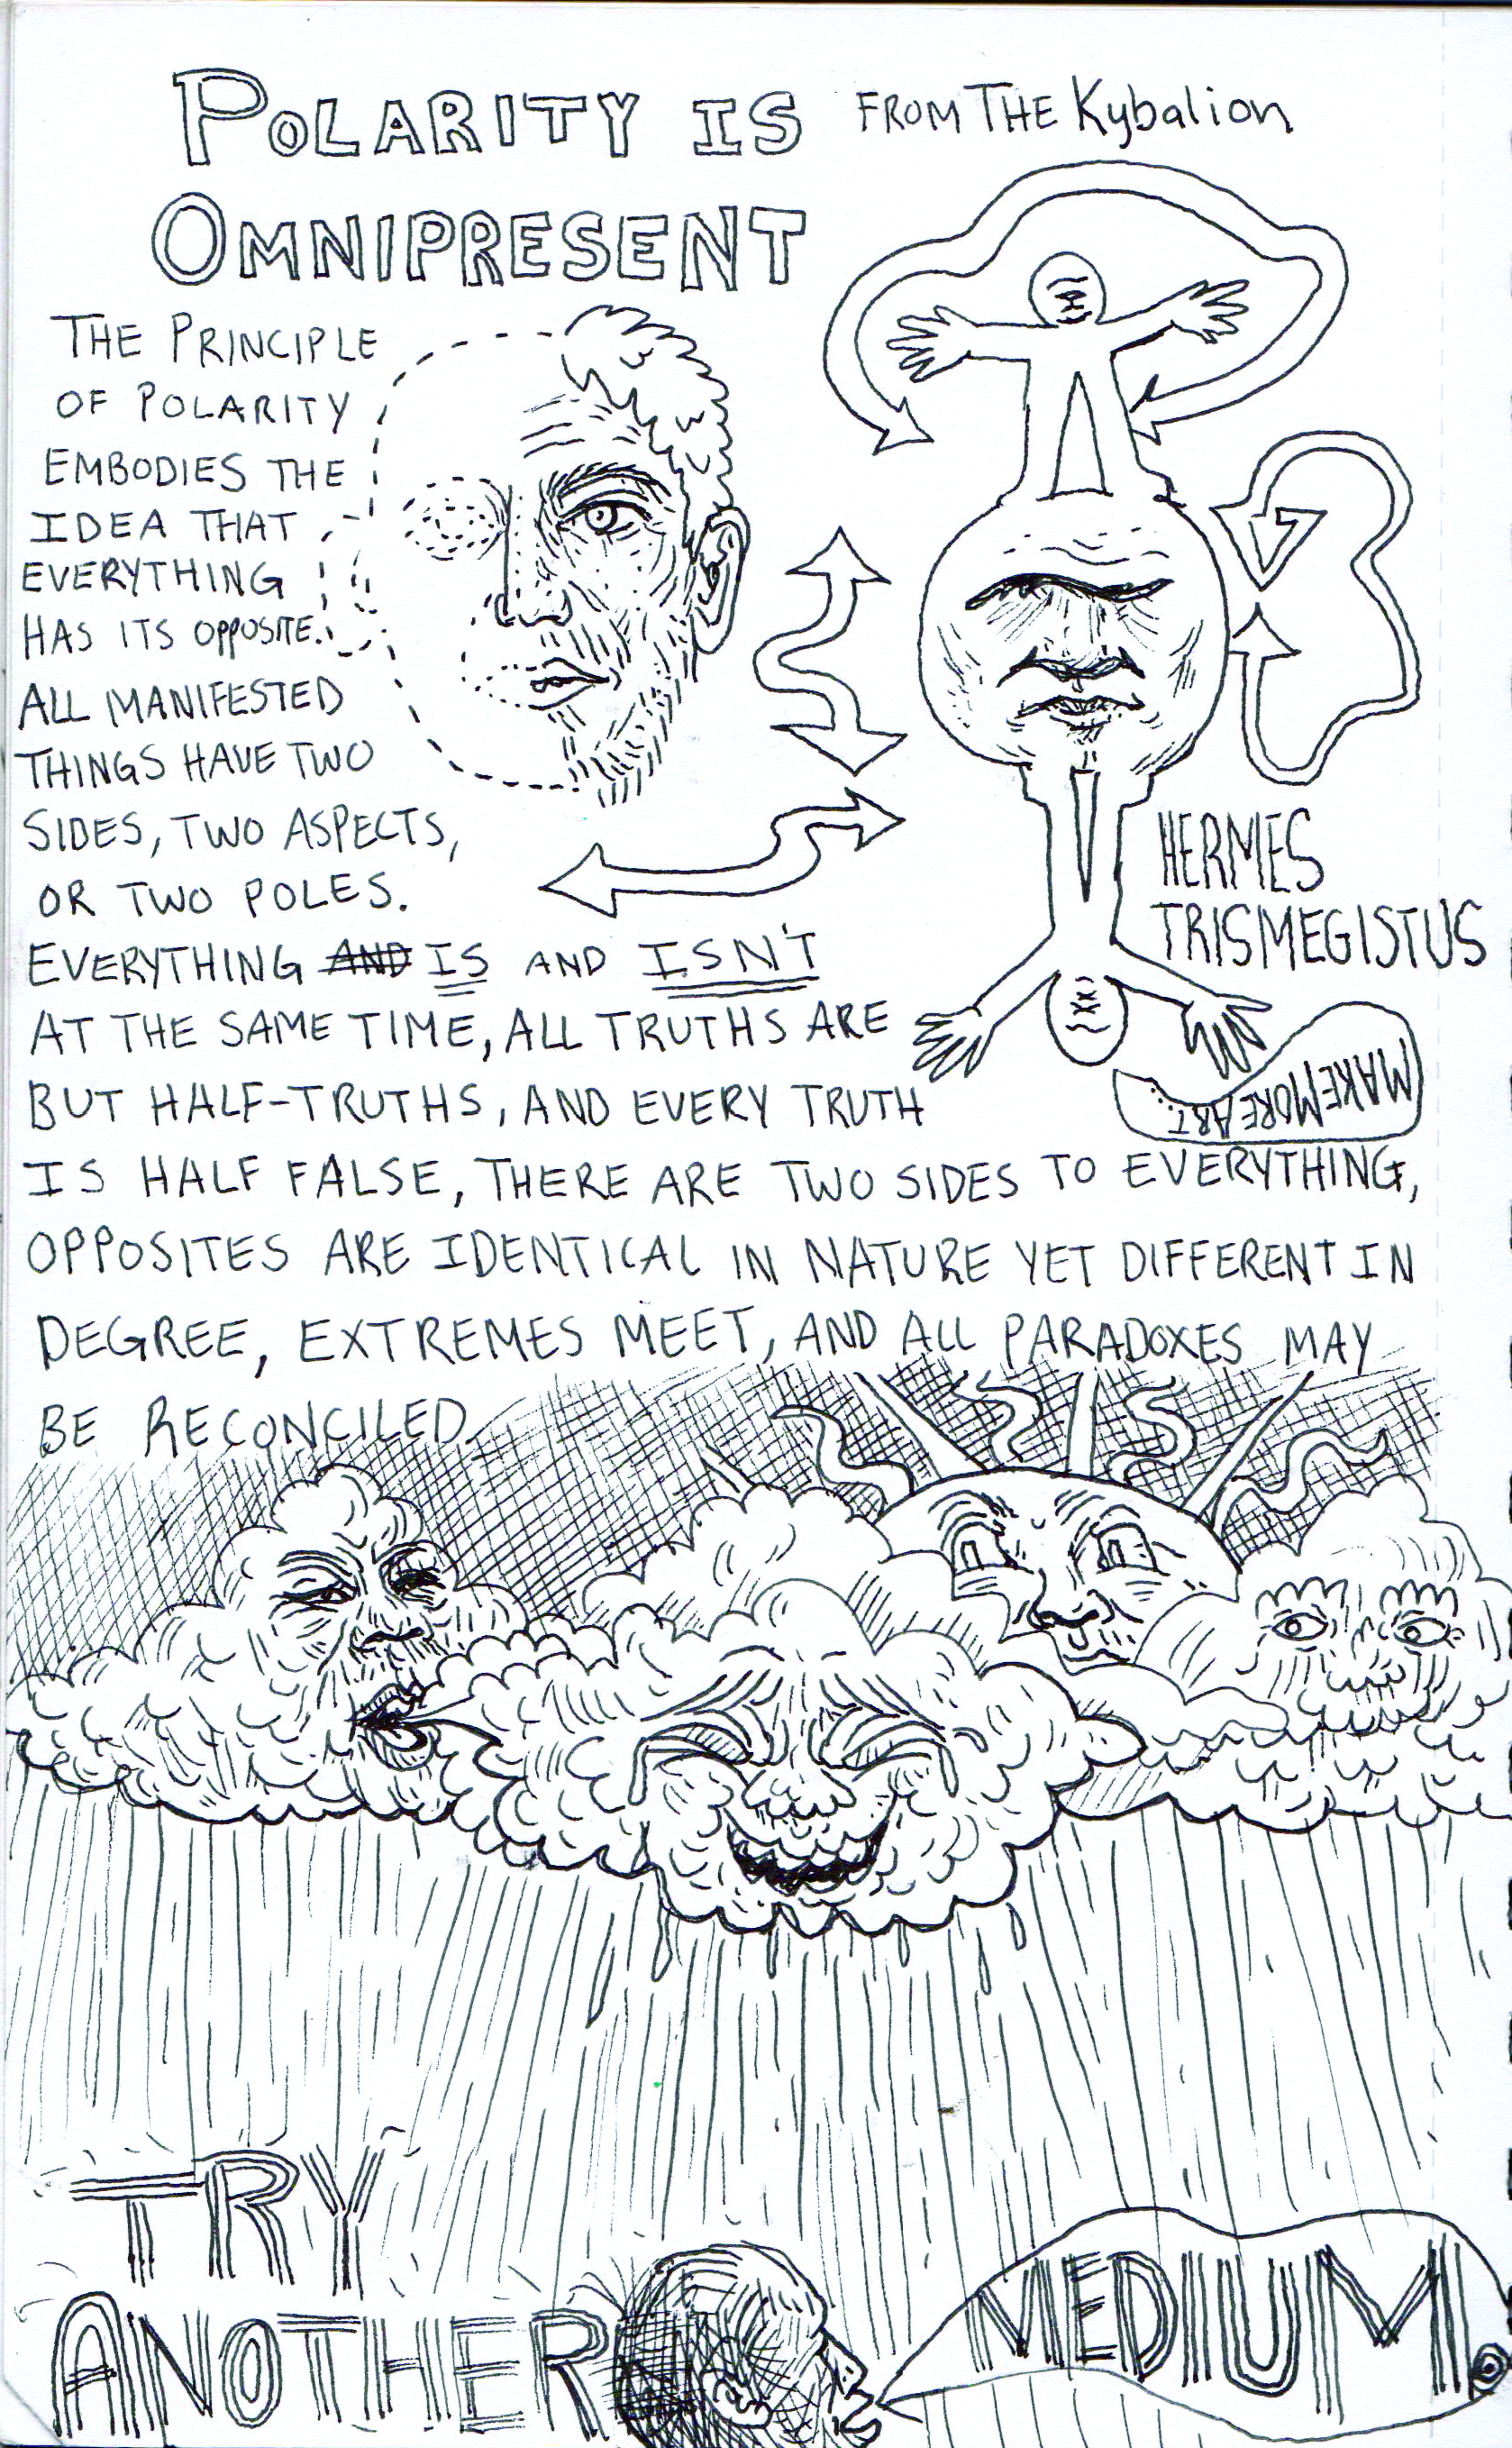 POLARITY IS FROM THE Kybalion
OMNIPRESENT
THE PRINCIPLE
OF POLARITY
EMBODIES THE
IDEA THAT
EVERYTHING
HAS ITS OPPOSITE.
ALL MANIFESTED
THINGS HAVE TWO
SIDES, TWO ASPECTS,
OR TWO POLES.
EVERYTHING AND IS AND ISN'T
AT THE SAME TIME, ALL TRUTHS ARE
BUT HALF-TRUTHS, AND EVERY TRUTH
IS HALF FALSE, THERE ARE TWO SIDES TO EVERYTHING,
OPPOSITES ARE IDENTICAL IN NATURE YET DIFFERENT IN
DEGREE, EXTREMES MEET, AND ALL PARADOXES MAY
BE RECONCILED.
HERMES
TRISMEGISTUS
MAKE MORE ART
TRY
ANOTHER
MEDIUM.